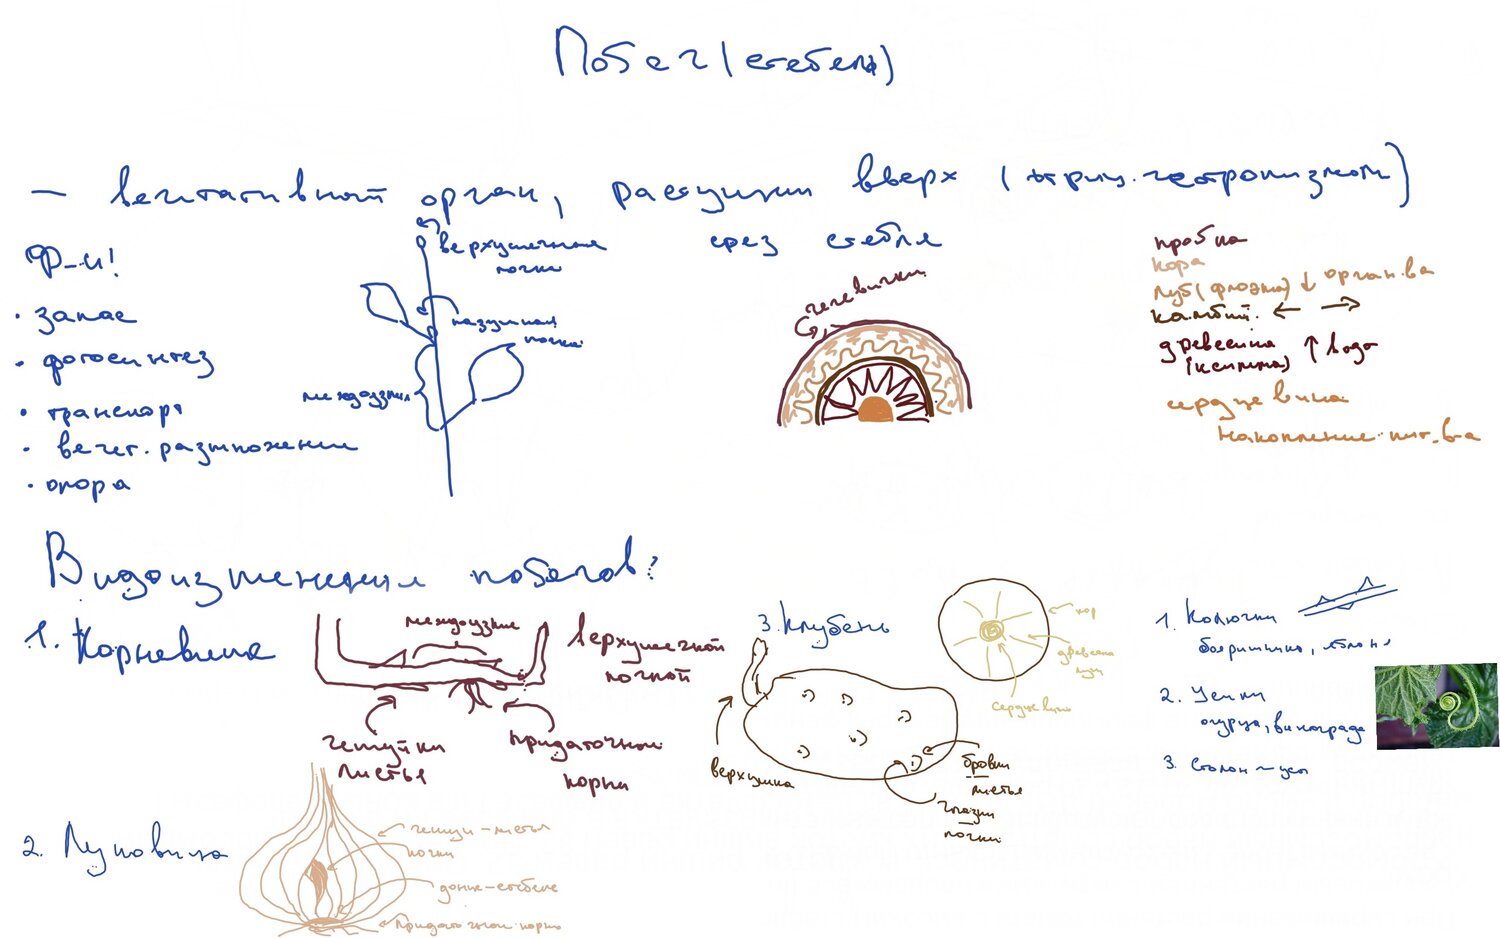 Побег (стебель)
— вегитативный орган, растущий вверх (отриц. геотропизмом)
Ф-и!
• запас
• фотосинтез
• транспорт
• вегет. размножение
• опора
верхушечная
почка
пазушная
почка
междоузлия
срез стебля
чечевички
пробка
кора
луб (флоэма) ↓ орган. ва
камбий ← →
древесина ↑ вода
(ксилема)
сердцевина
накопление пит. в-а
Видоизменения побегов:
1. Корневище
междоузлие
верхушечной
почкой
чешуйки
листья
придаточные
корни
2. Луковица
чешуи – листья
почки
донце – стебель
придаточные корни
3. Клубень
верхушка
бровки
листья
глазки
почки
кор
древесина
луб
сердцевина
1. Колючки
боярышника, яблоня
2. Усики
огурца, винограда
3. Столон – усы